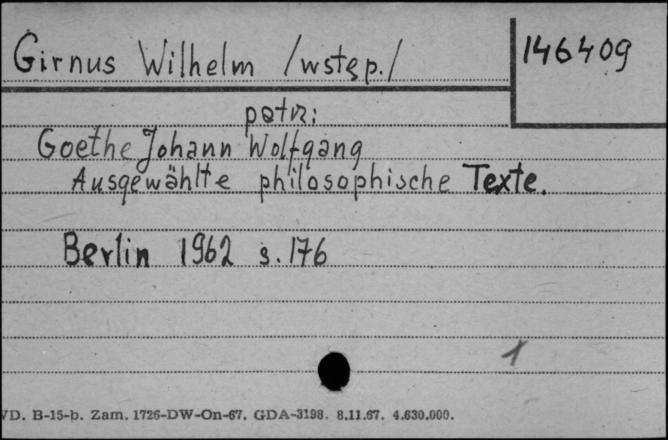 Girnus Wilhelm /wstęp./
146409
patrz:
Goethe Johann Wolfgang
Ausgewählte philosophische Texte.
Berlin 1962 s. 176
1
VD. B-15-b. Zam. 1726-DW-On-67. GDA-3198. 8.11.67. 4.630.000.